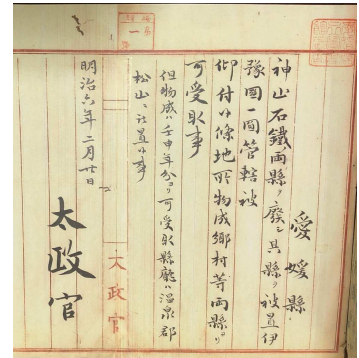 愛媛縣
神山石鐵両縣ヲ廢シ其縣ヲ被置伊
豫國一圓管轄被
仰付候條地所物成郷村等両縣ヨリ
可受取事
但物成ハ壬申年分ヨリ可受取縣廳ハ温泉郡
松山ニ被置候事
明治六年二月廿日
太政官
太政官